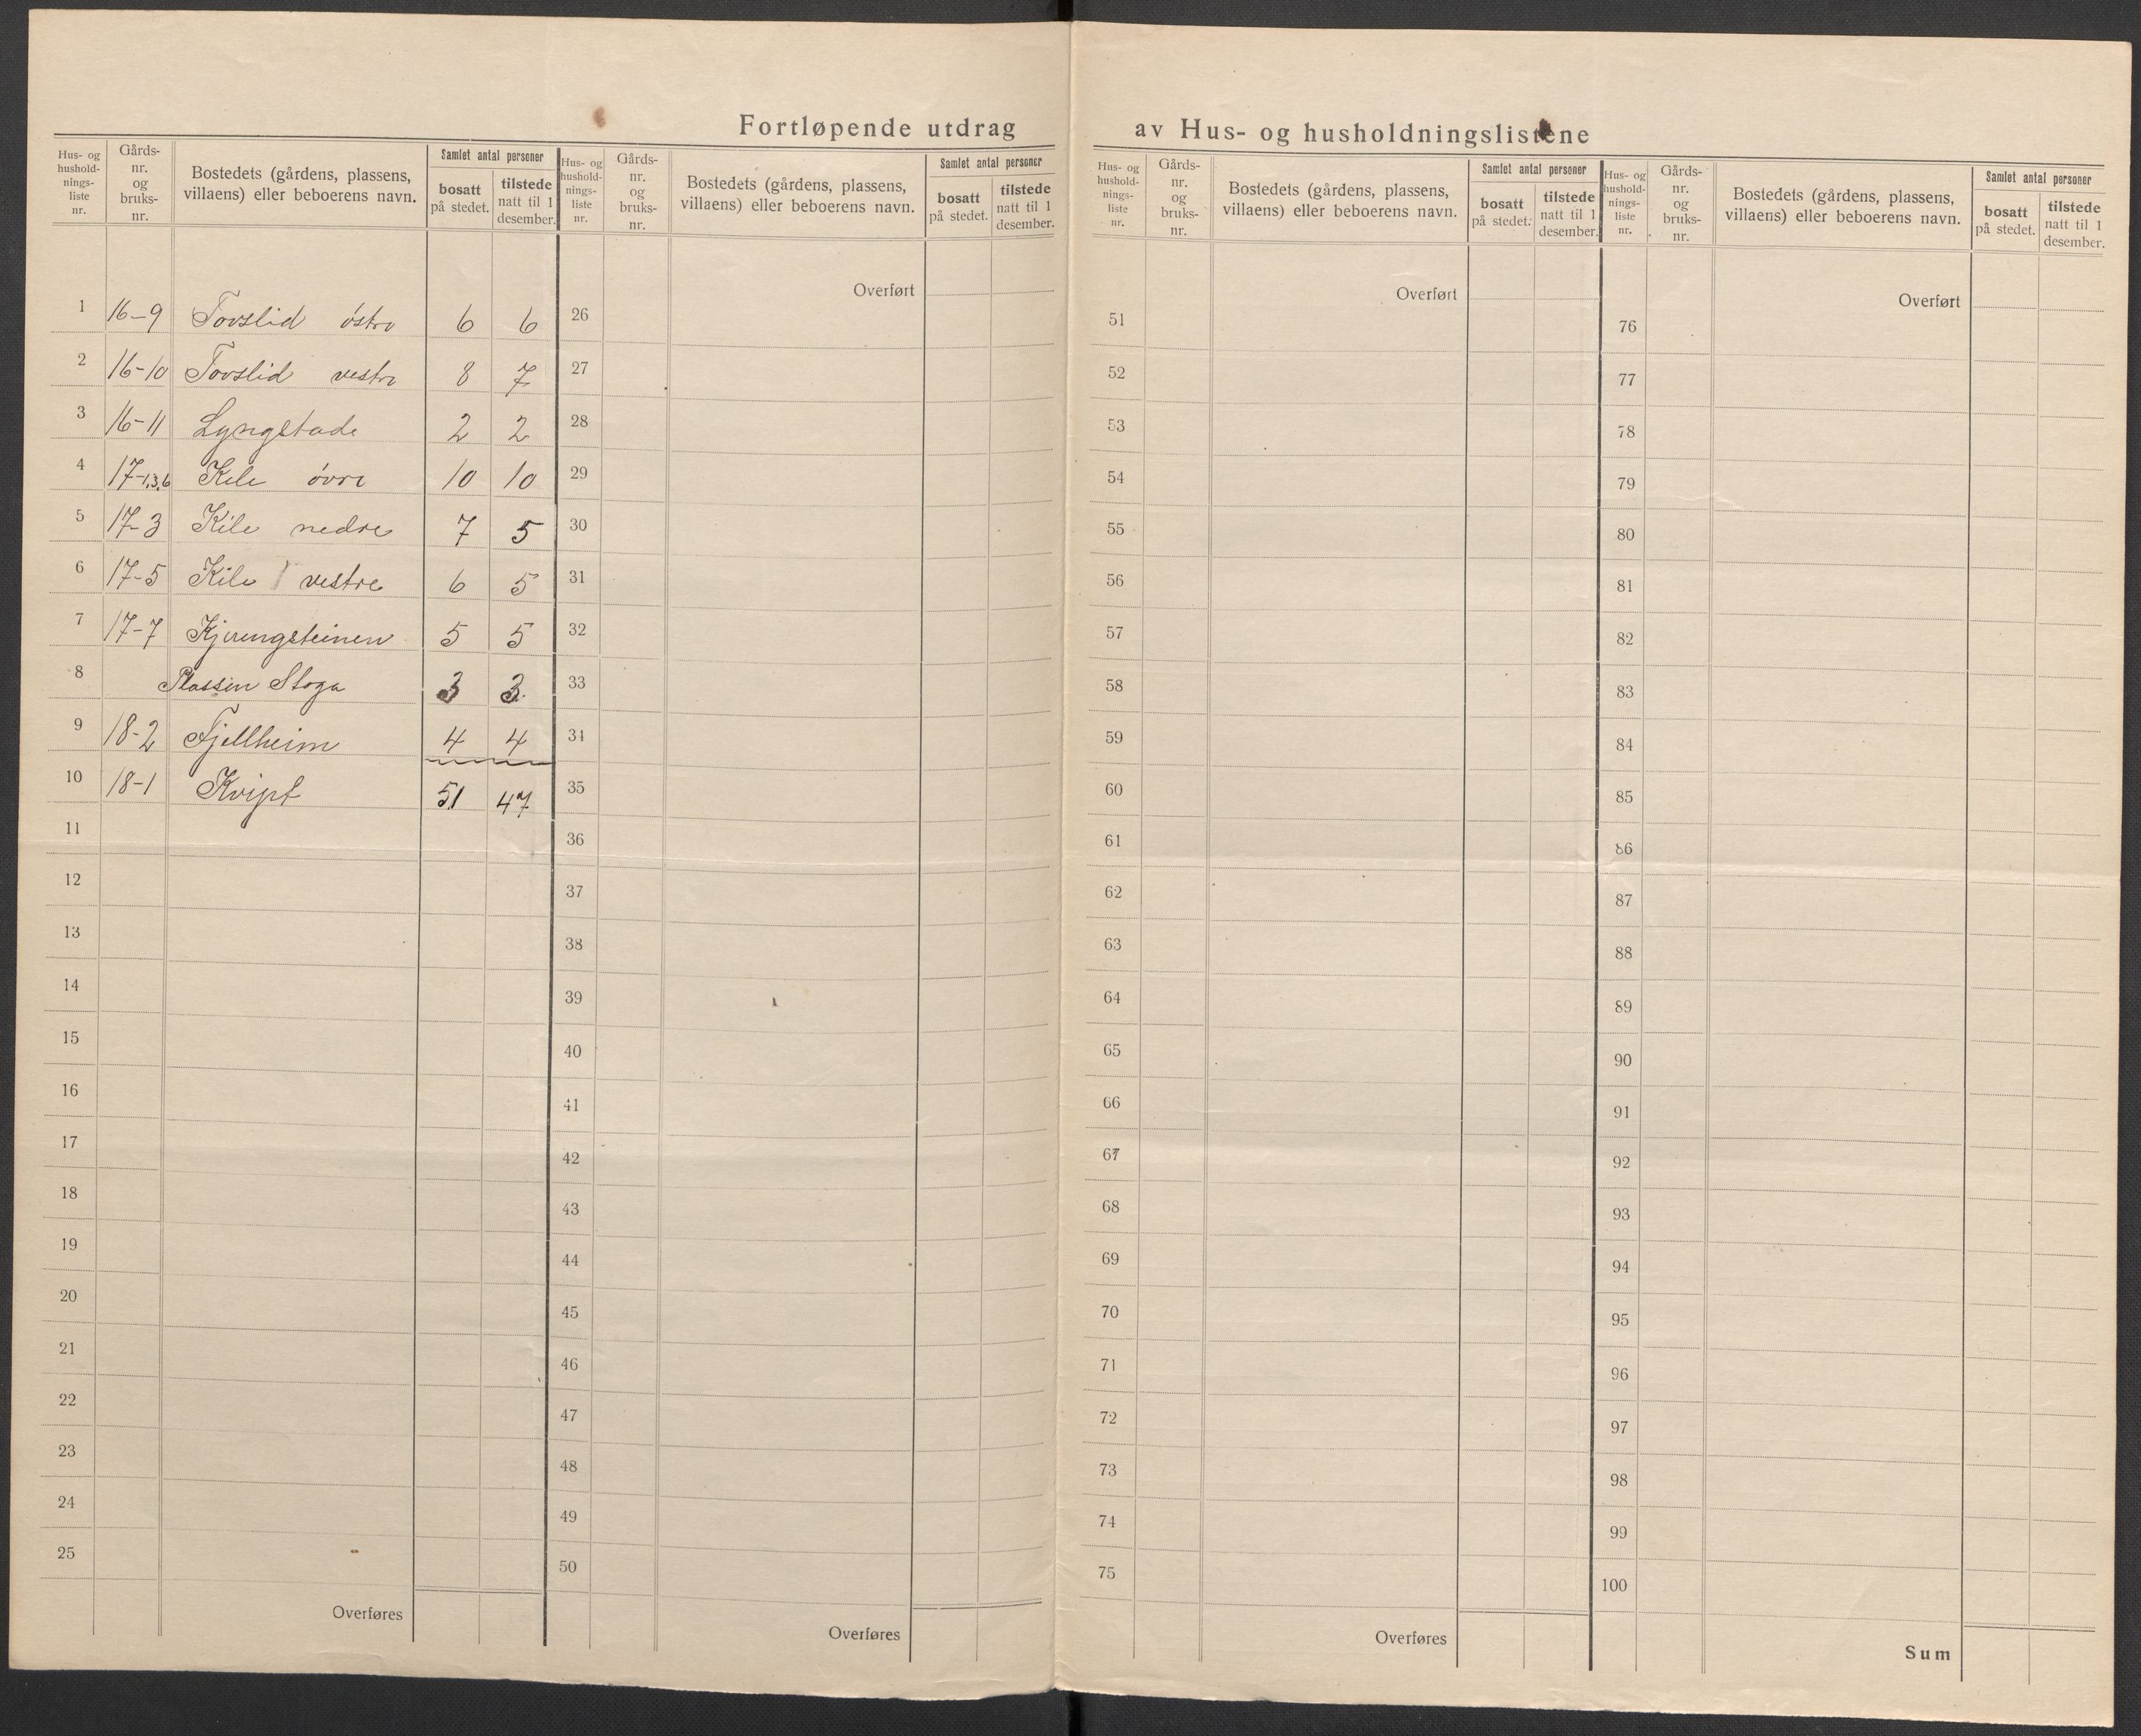 Fortløpende utdrag av Hus- og husholdningslistene
Hus- og hushold-nings-liste nr.
Gårds-nr. og bruks-nr.
Bostedets (gårdens, plassens, villaens) eller beboerens navn.
Samlet antal personer
bosatt på stedet.
tilstede natt til 1 desember.
1 16-9 Tovslid östre 6 6
2 16-10 Tovslid vestre 8 7
3 16-11 Lyngstade 2 2
4 17-1,3,6 Kile övre 10 10
5 17-3 Kile nedre 7 5
6 17-5 Kile vestre 6 5
7 17-7 Kjerringsteinen 5 5
8 Plassen Stoga 3 3
9 18-2 Fjellheim 4 4
10 18-1 51 47
11
12
13
14
15
16
17
18
19
20
21
22
23
24
25
Overføres
Hus- og hushold-nings-liste nr.
Gårds-nr. og bruks-nr.
Bostedets (gårdens, plassens, villaens) eller beboerens navn.
Samlet antal personer
bosatt på stedet.
tilstede natt til 1 desember.
Overført
26
27
28
29
30
31
32
33
34
35
36
37
38
39
40
41
42
43
44
45
46
47
48
49
50
Overføres
Hus- og hushold-nings-liste nr.
Gårds-nr. og bruks-nr.
Bostedets (gårdens, plassens, villaens) eller beboerens navn.
Samlet antal personer
bosatt på stedet.
tilstede natt til 1 desember.
Overført
51
52
53
54
55
56
57
58
59
60
61
62
63
64
65
66
67
68
69
70
71
72
73
74
75
Overføres
Hus- og hushold-nings-liste nr.
Gårds-nr. og bruks-nr.
Bostedets (gårdens, plassens, villaens) eller beboerens navn.
Samlet antal personer
bosatt på stedet.
tilstede natt til 1 desember.
Overført
76
77
78
79
80
81
82
83
84
85
86
87
88
89
90
91
92
93
94
95
96
97
98
99
100
Sum